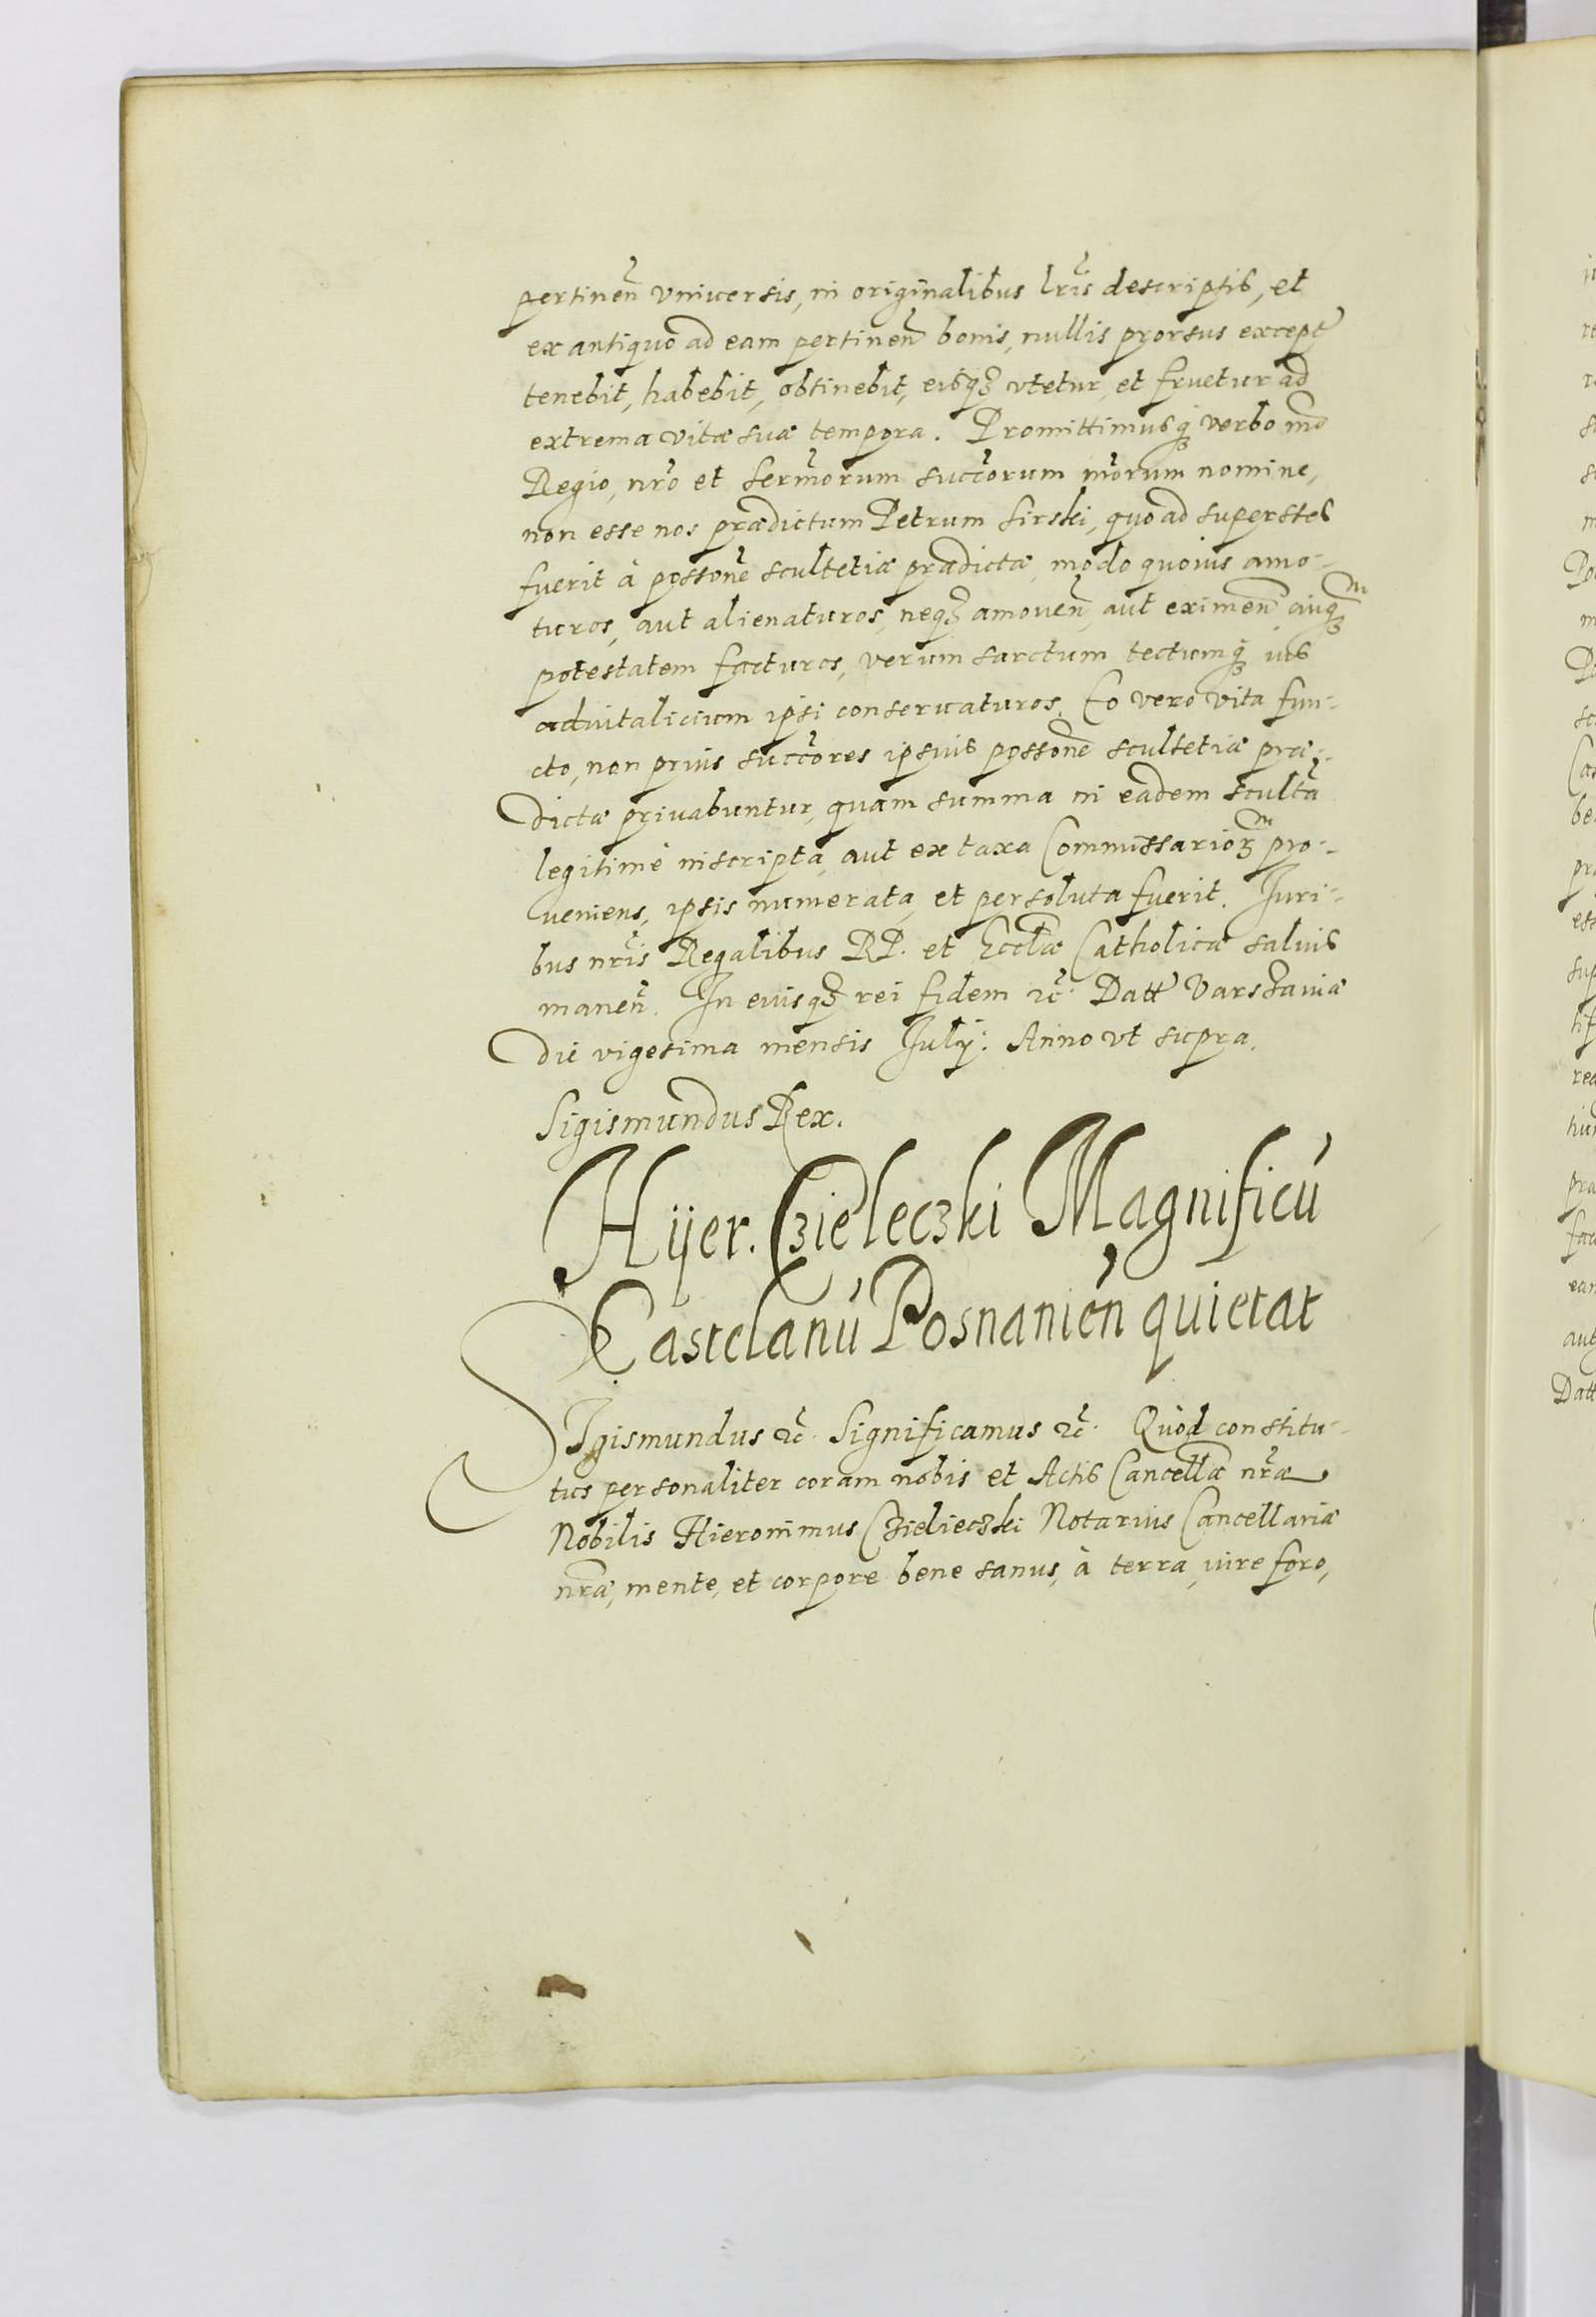 pertinen̄ vniuersis, in originalibus lr̄is descriptis, et
ex antiquo ad eam pertinen̄ bonis, nullis prorsus except
tenebit, habebit, obtinebit, eisqꝫ vtetur, et fruetur ad
extrema vitæ suæ tempora. Promittimusqꝫ verbo nr̄o
Regio, nr̄o et Serm̄orum succ̄orum nr̄orum nomine,
non esse nos prædictum Petrum Sirski, quoad superstes
fuerit à posson̄e scultetiæ prædictæ, modo quouis amo-
turos, aut alienaturos, neqꝫ amouen̄, aut eximen̄ cuiqꝫm
potestatem facturos, verum sarctum tectumqꝫ ius
aduitalicium ipsi conseruaturos. Eo vero vita fun-
cto, non prius succ̄ores ipsius posson̄e scultetiæ præ-
dictæ priuabuntur, quam summa in eadem scult̄a
legitimè inscripta, aut ex taxa Commissarioꝝm pro-
ueniens, ipsis numerata, et persoluta fuerit. Iuri-
bus nr̄is Regalibus RP. et Eccl̄æ Catholicæ saluis
manen̄. In cuius qꝫ rei fidem ꝛc̄. Datt Varszauiæ
die vigesima mensis Iulij: Anno vt supra.
Sigismundus Rex.
Hÿer. Czieleczki Magnificú
Castelanú Posnanień quietat
SIgismundus ꝛc̄. Significamus ꝛc̄. Quòd constitu-
tus personaliter coram nobis et Actis Cancell̄æ nr̄æ
Nobilis Hieronimus Czielieczki Notarius Cancellariæ
nr̄æ, mente, et corpore bene sanus, à terra, iure foro,